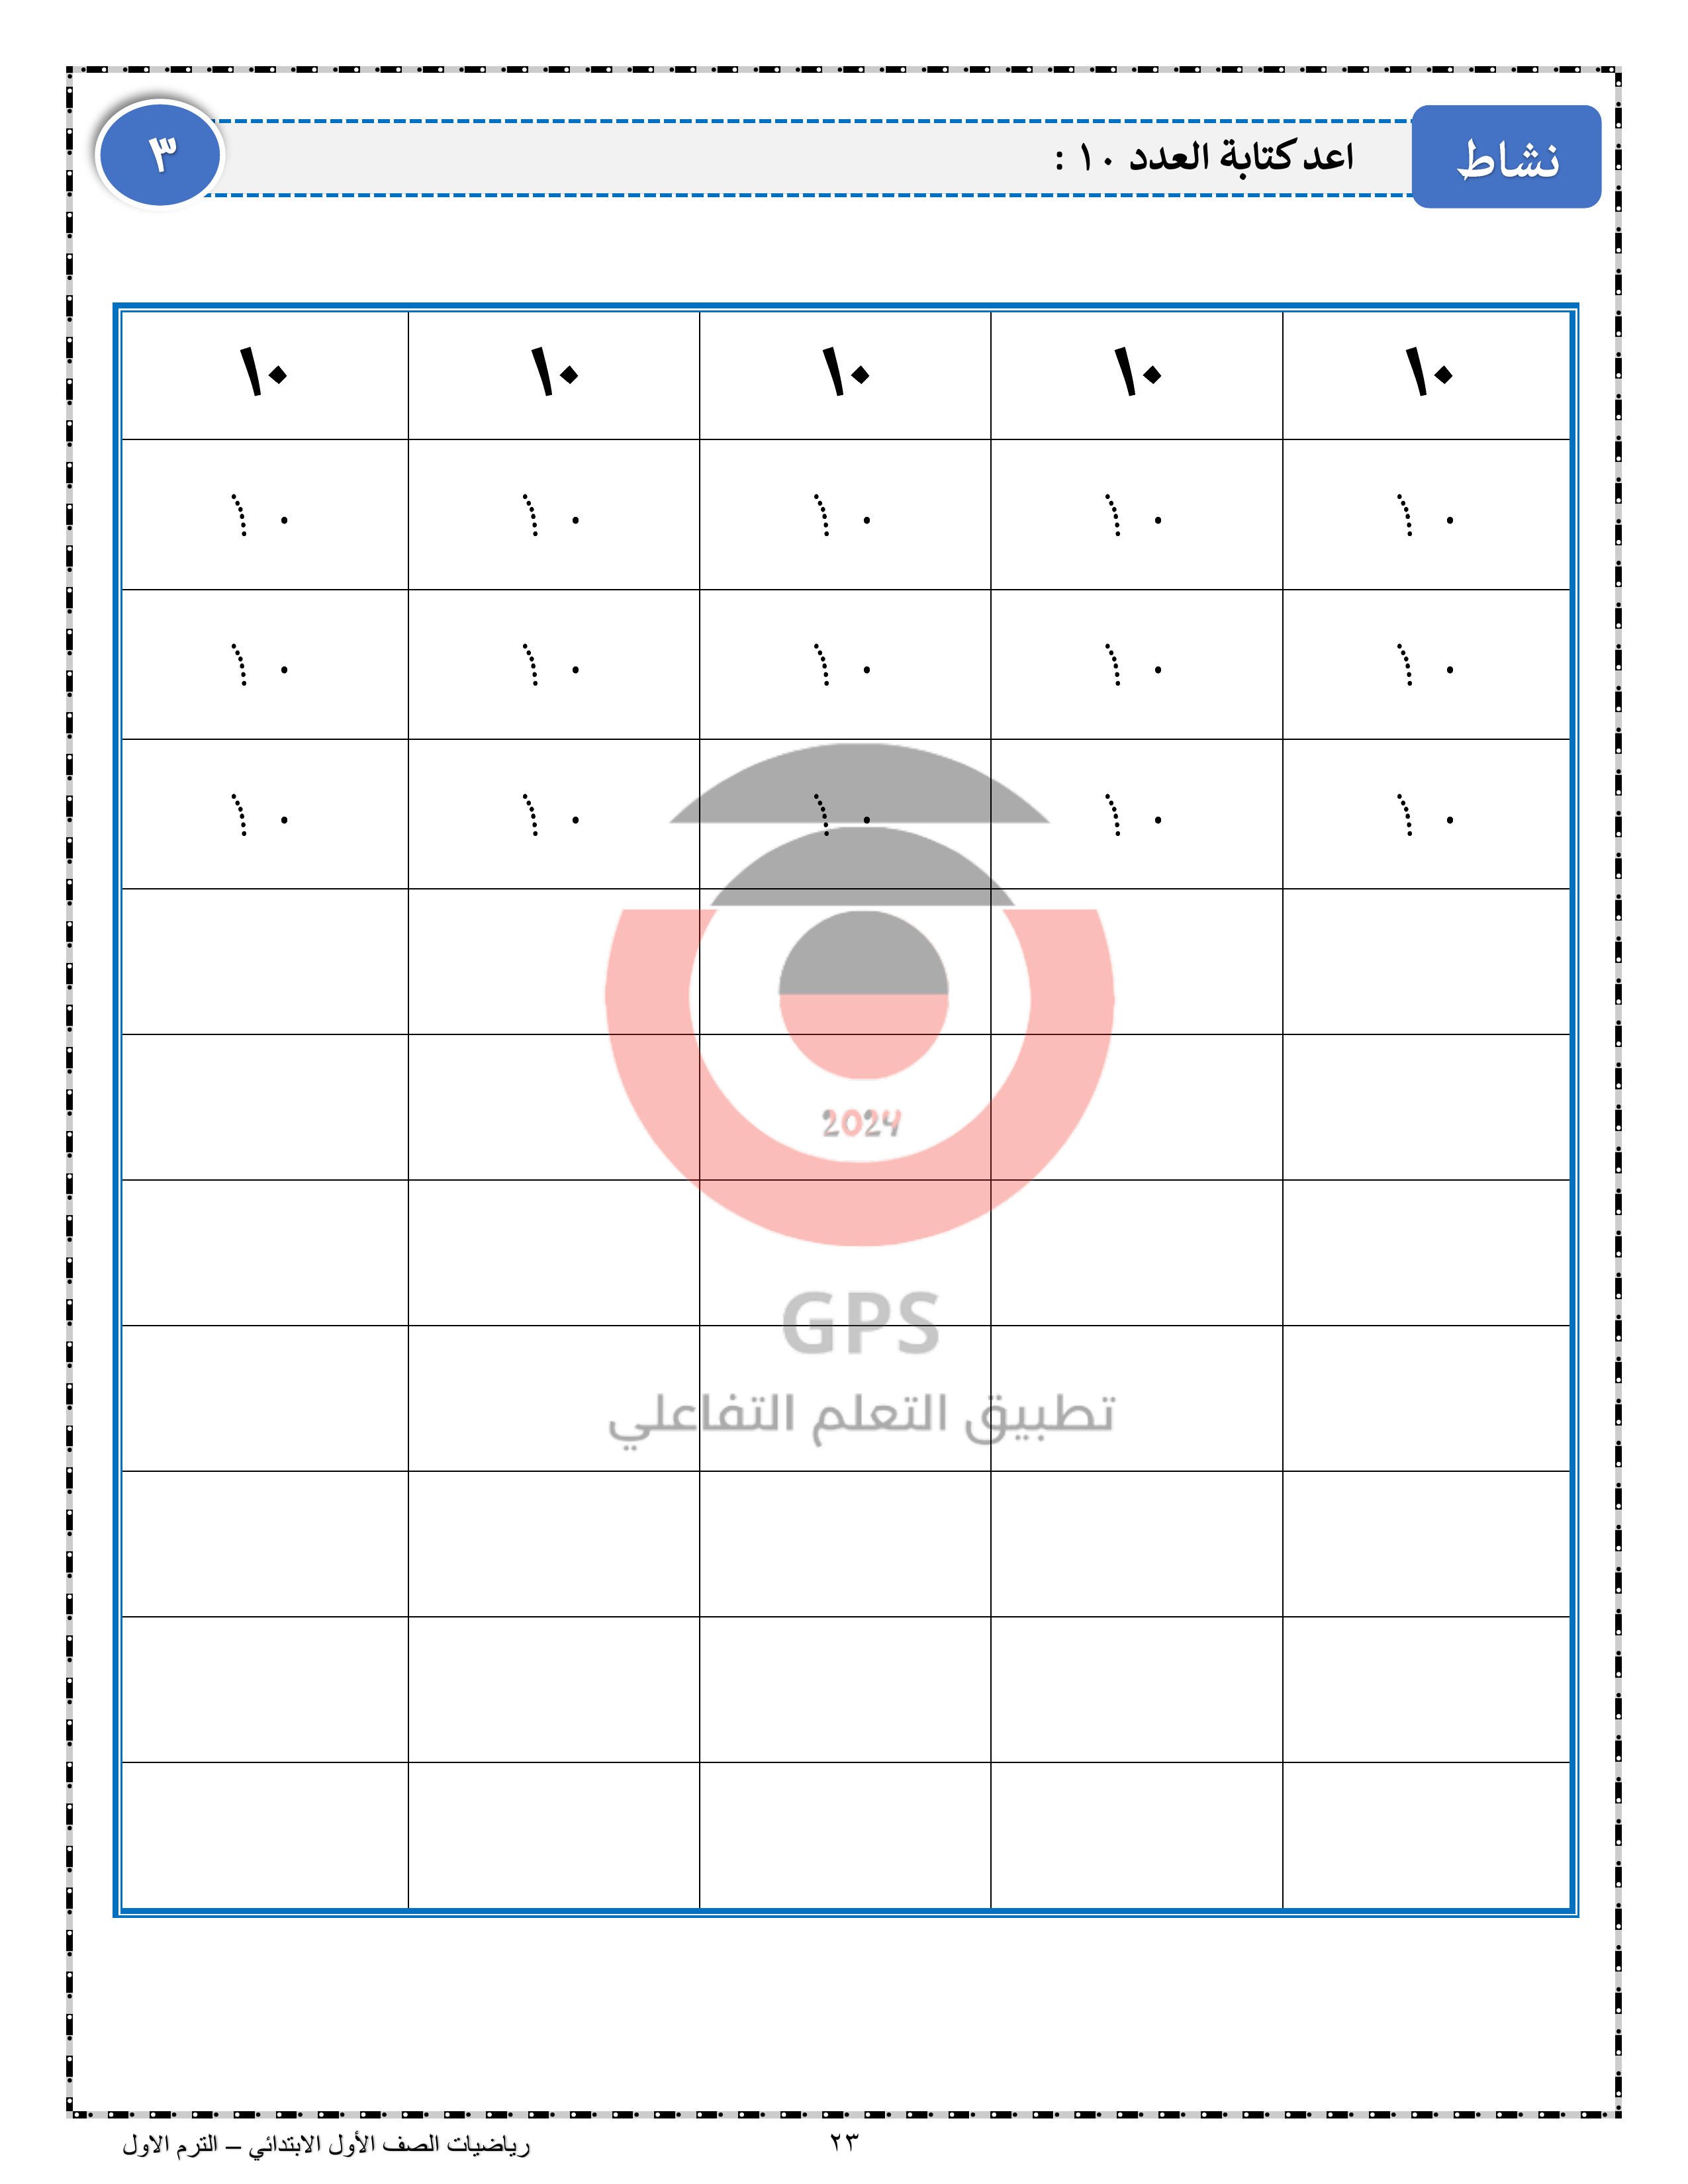 نشاط
اعد كتابة العدد ١٠ :
٣
١٠ ١٠ ١٠ ١٠ ١٠
١٠ ١٠ ١٠ ١٠ ١٠
١٠ ١٠ ١٠ ١٠ ١٠
١٠ ١٠ ١٠ ١٠ ١٠
2024
GPS
تطبيق التعلم التفاعلي
٢٣
رياضيات الصف الأول الابتدائي – الترم الاول